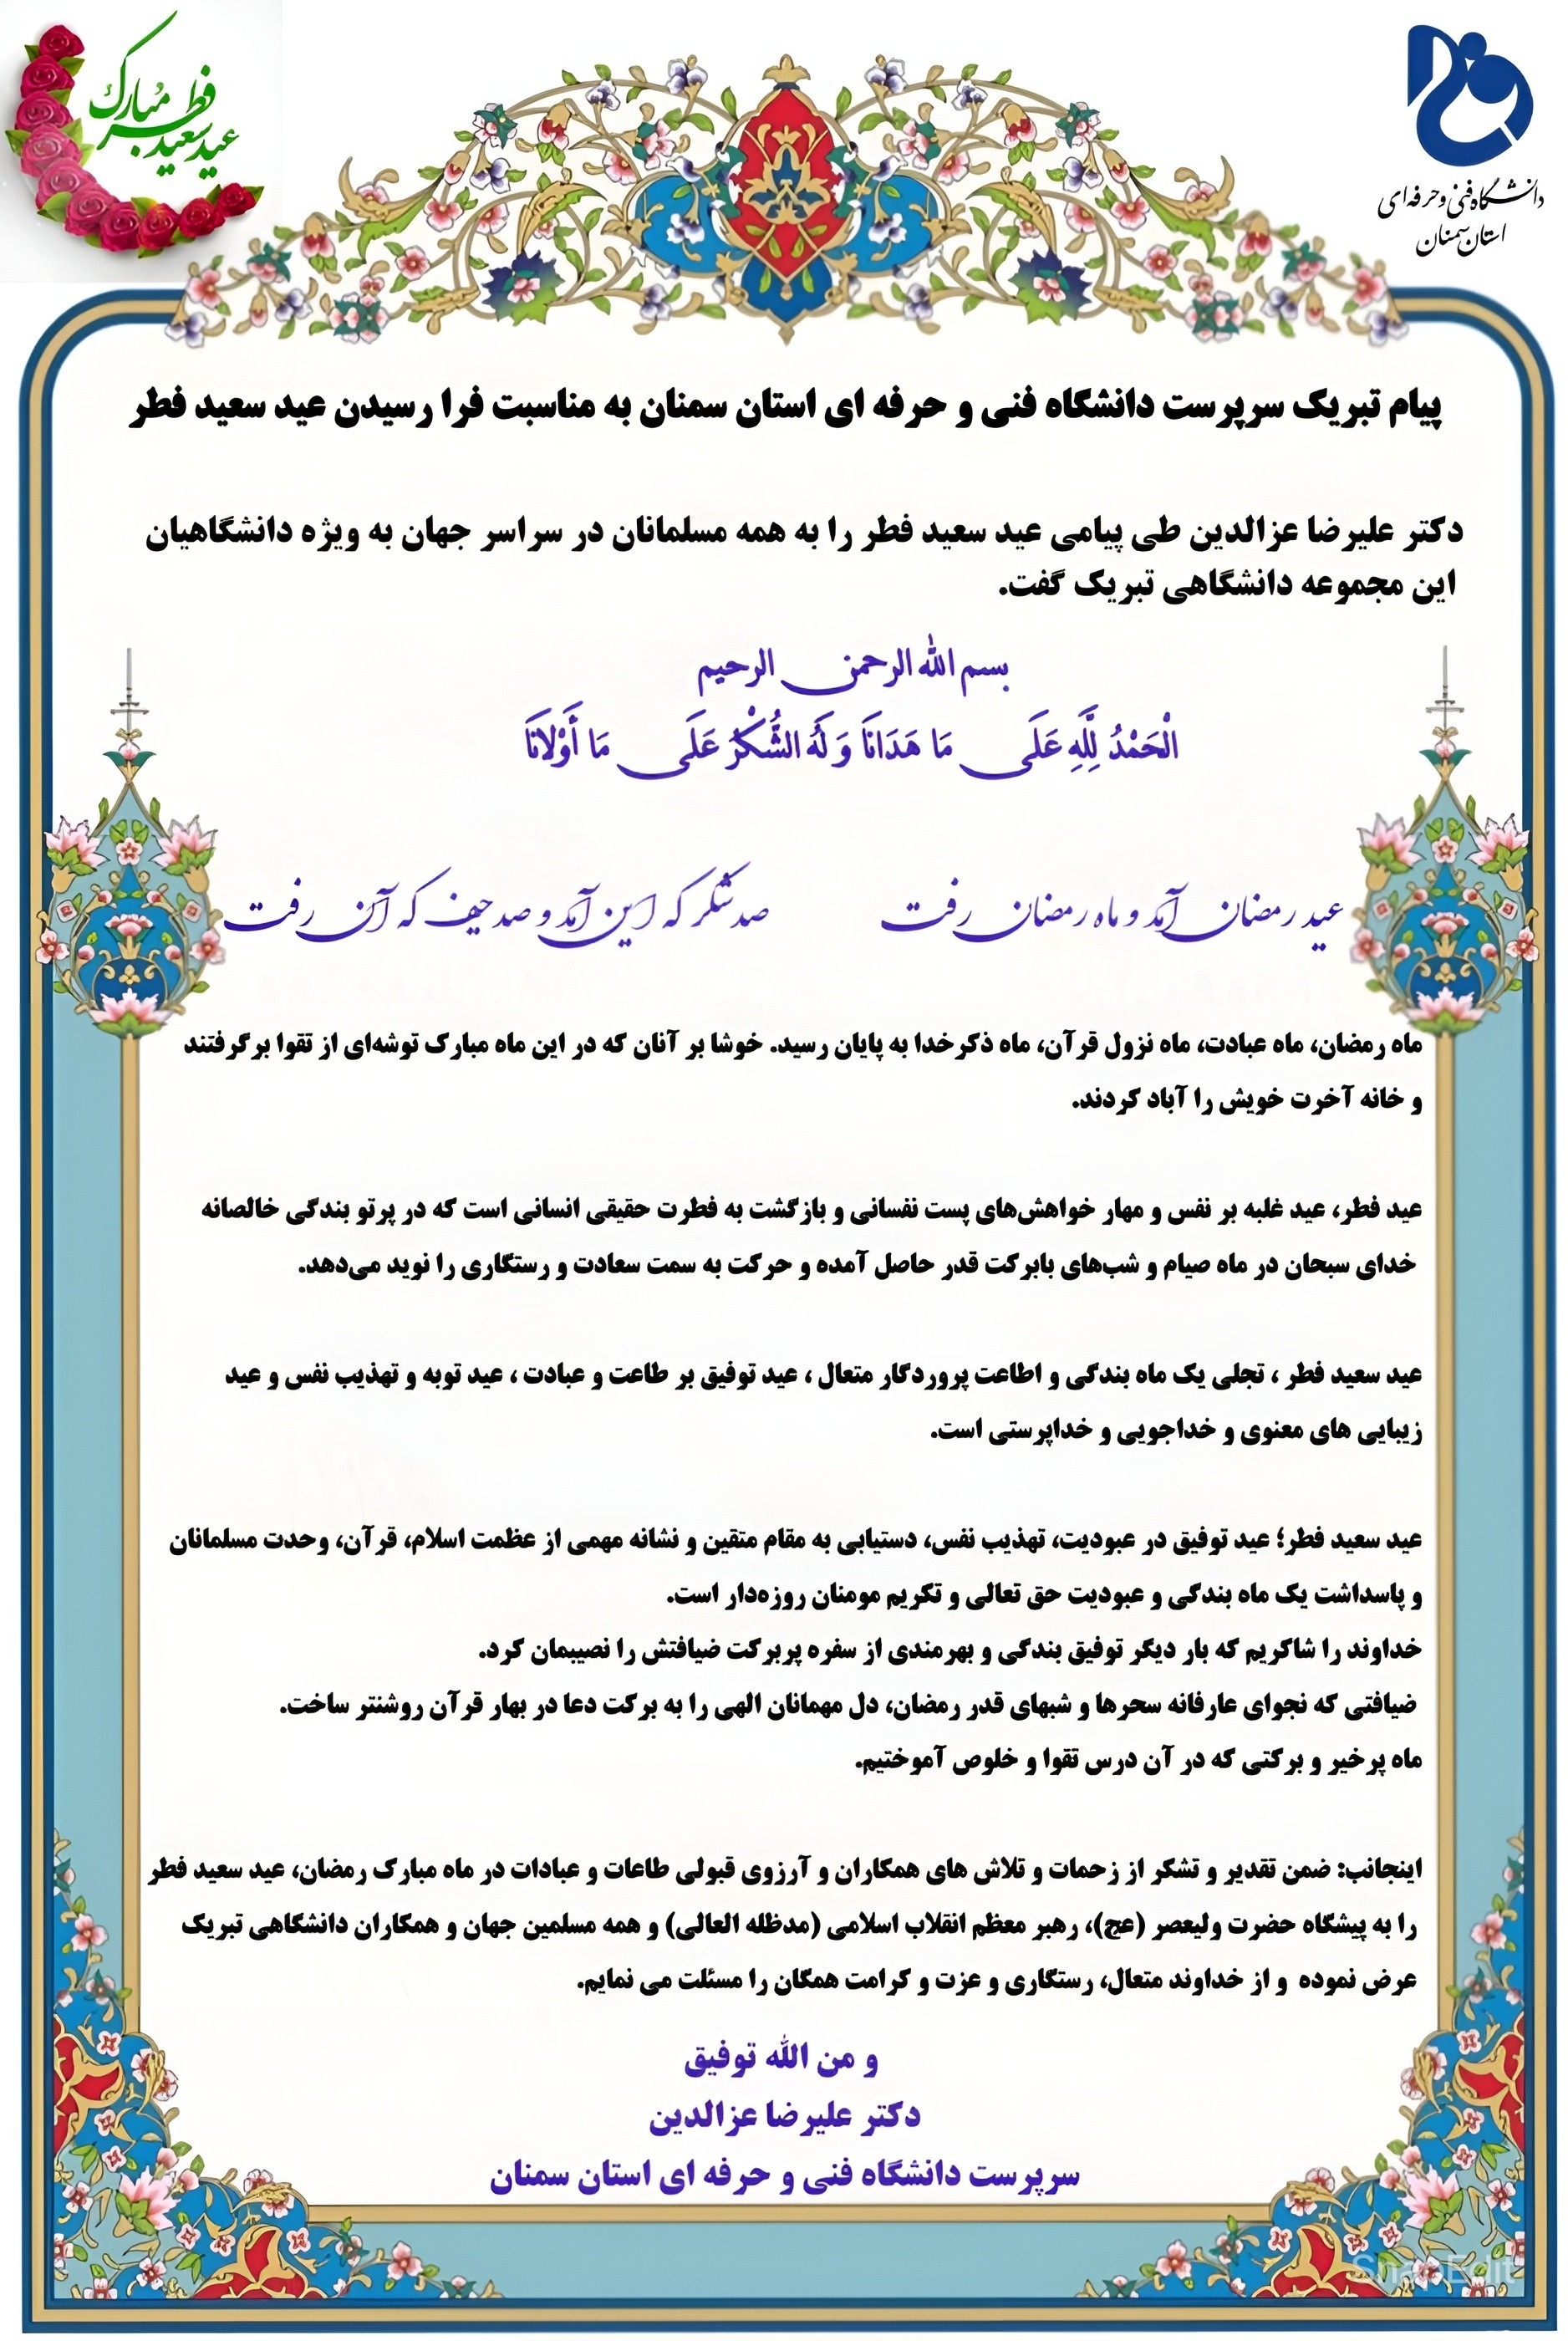 عید سعید فطر مبارک
دانشگاه فنی و حرفه‌ای
استان سمنان
پیام تبریک سرپرست دانشگاه فنی و حرفه ای استان سمنان به مناسبت فرا رسیدن عید سعید فطر
دکتر علیرضا عزالدین طی پیامی عید سعید فطر را به همه مسلمانان در سراسر جهان به ویژه دانشگاهیان
این مجموعه دانشگاهی تبریک گفت.
بسم الله الرحمن الرحیم
الْحَمْدُ لِلَّهِ عَلَى مَا هَدَانَا وَ لَهُ الشُّكْرُ عَلَى مَا أَوْلَانَا
عید رمضان آمد و ماه رمضان رفت صد شکر که این آمد و صد حیف که آن رفت
ماه رمضان، ماه عبادت، ماه نزول قرآن، ماه ذکرخدا به پایان رسید. خوشا بر آنان که در این ماه مبارک توشه‌ای از تقوا برگرفتند
و خانه آخرت خویش را آباد کردند.
عید فطر، عید غلبه بر نفس و مهار خواهش‌های پست نفسانی و بازگشت به فطرت حقیقی انسانی است که در پرتو بندگی خالصانه
خدای سبحان در ماه صیام و شب‌های بابرکت قدر حاصل آمده و حرکت به سمت سعادت و رستگاری را نوید می‌دهد.
عید سعید فطر ، تجلی یک ماه بندگی و اطاعت پروردگار متعال ، عید توفیق بر طاعت و عبادت ، عید توبه و تهذیب نفس و عید
زیبایی های معنوی و خداجویی و خداپرستی است.
عید سعید فطر؛ عید توفیق در عبودیت، تهذیب نفس، دستیابی به مقام متقین و نشانه مهمی از عظمت اسلام، قرآن، وحدت مسلمانان
و پاسداشت یک ماه بندگی و عبودیت حق تعالی و تکریم مومنان روزه‌دار است.
خداوند را شاکریم که بار دیگر توفیق بندگی و بهرمندی از سفره پربرکت ضیافتش را نصیبمان کرد.
ضیافتی که نجوای عارفانه سحرها و شبهای قدر رمضان، دل مهمانان الهی را به برکت دعا در بهار قرآن روشنتر ساخت.
ماه پرخیر و برکتی که در آن درس تقوا و خلوص آموختیم.
اینجانب: ضمن تقدیر و تشکر از زحمات و تلاش های همکاران و آرزوی قبولی طاعات و عبادات در ماه مبارک رمضان، عید سعید فطر
را به پیشگاه حضرت ولیعصر (عج)، رهبر معظم انقلاب اسلامی (مدظله العالی) و همه مسلمین جهان و همکاران دانشگاهی تبریک
عرض نموده و از خداوند متعال، رستگاری و عزت و کرامت همگان را مسئلت می نمایم.
و من الله توفیق
دکتر علیرضا عزالدین
سرپرست دانشگاه فنی و حرفه ای استان سمنان
SnapEdit